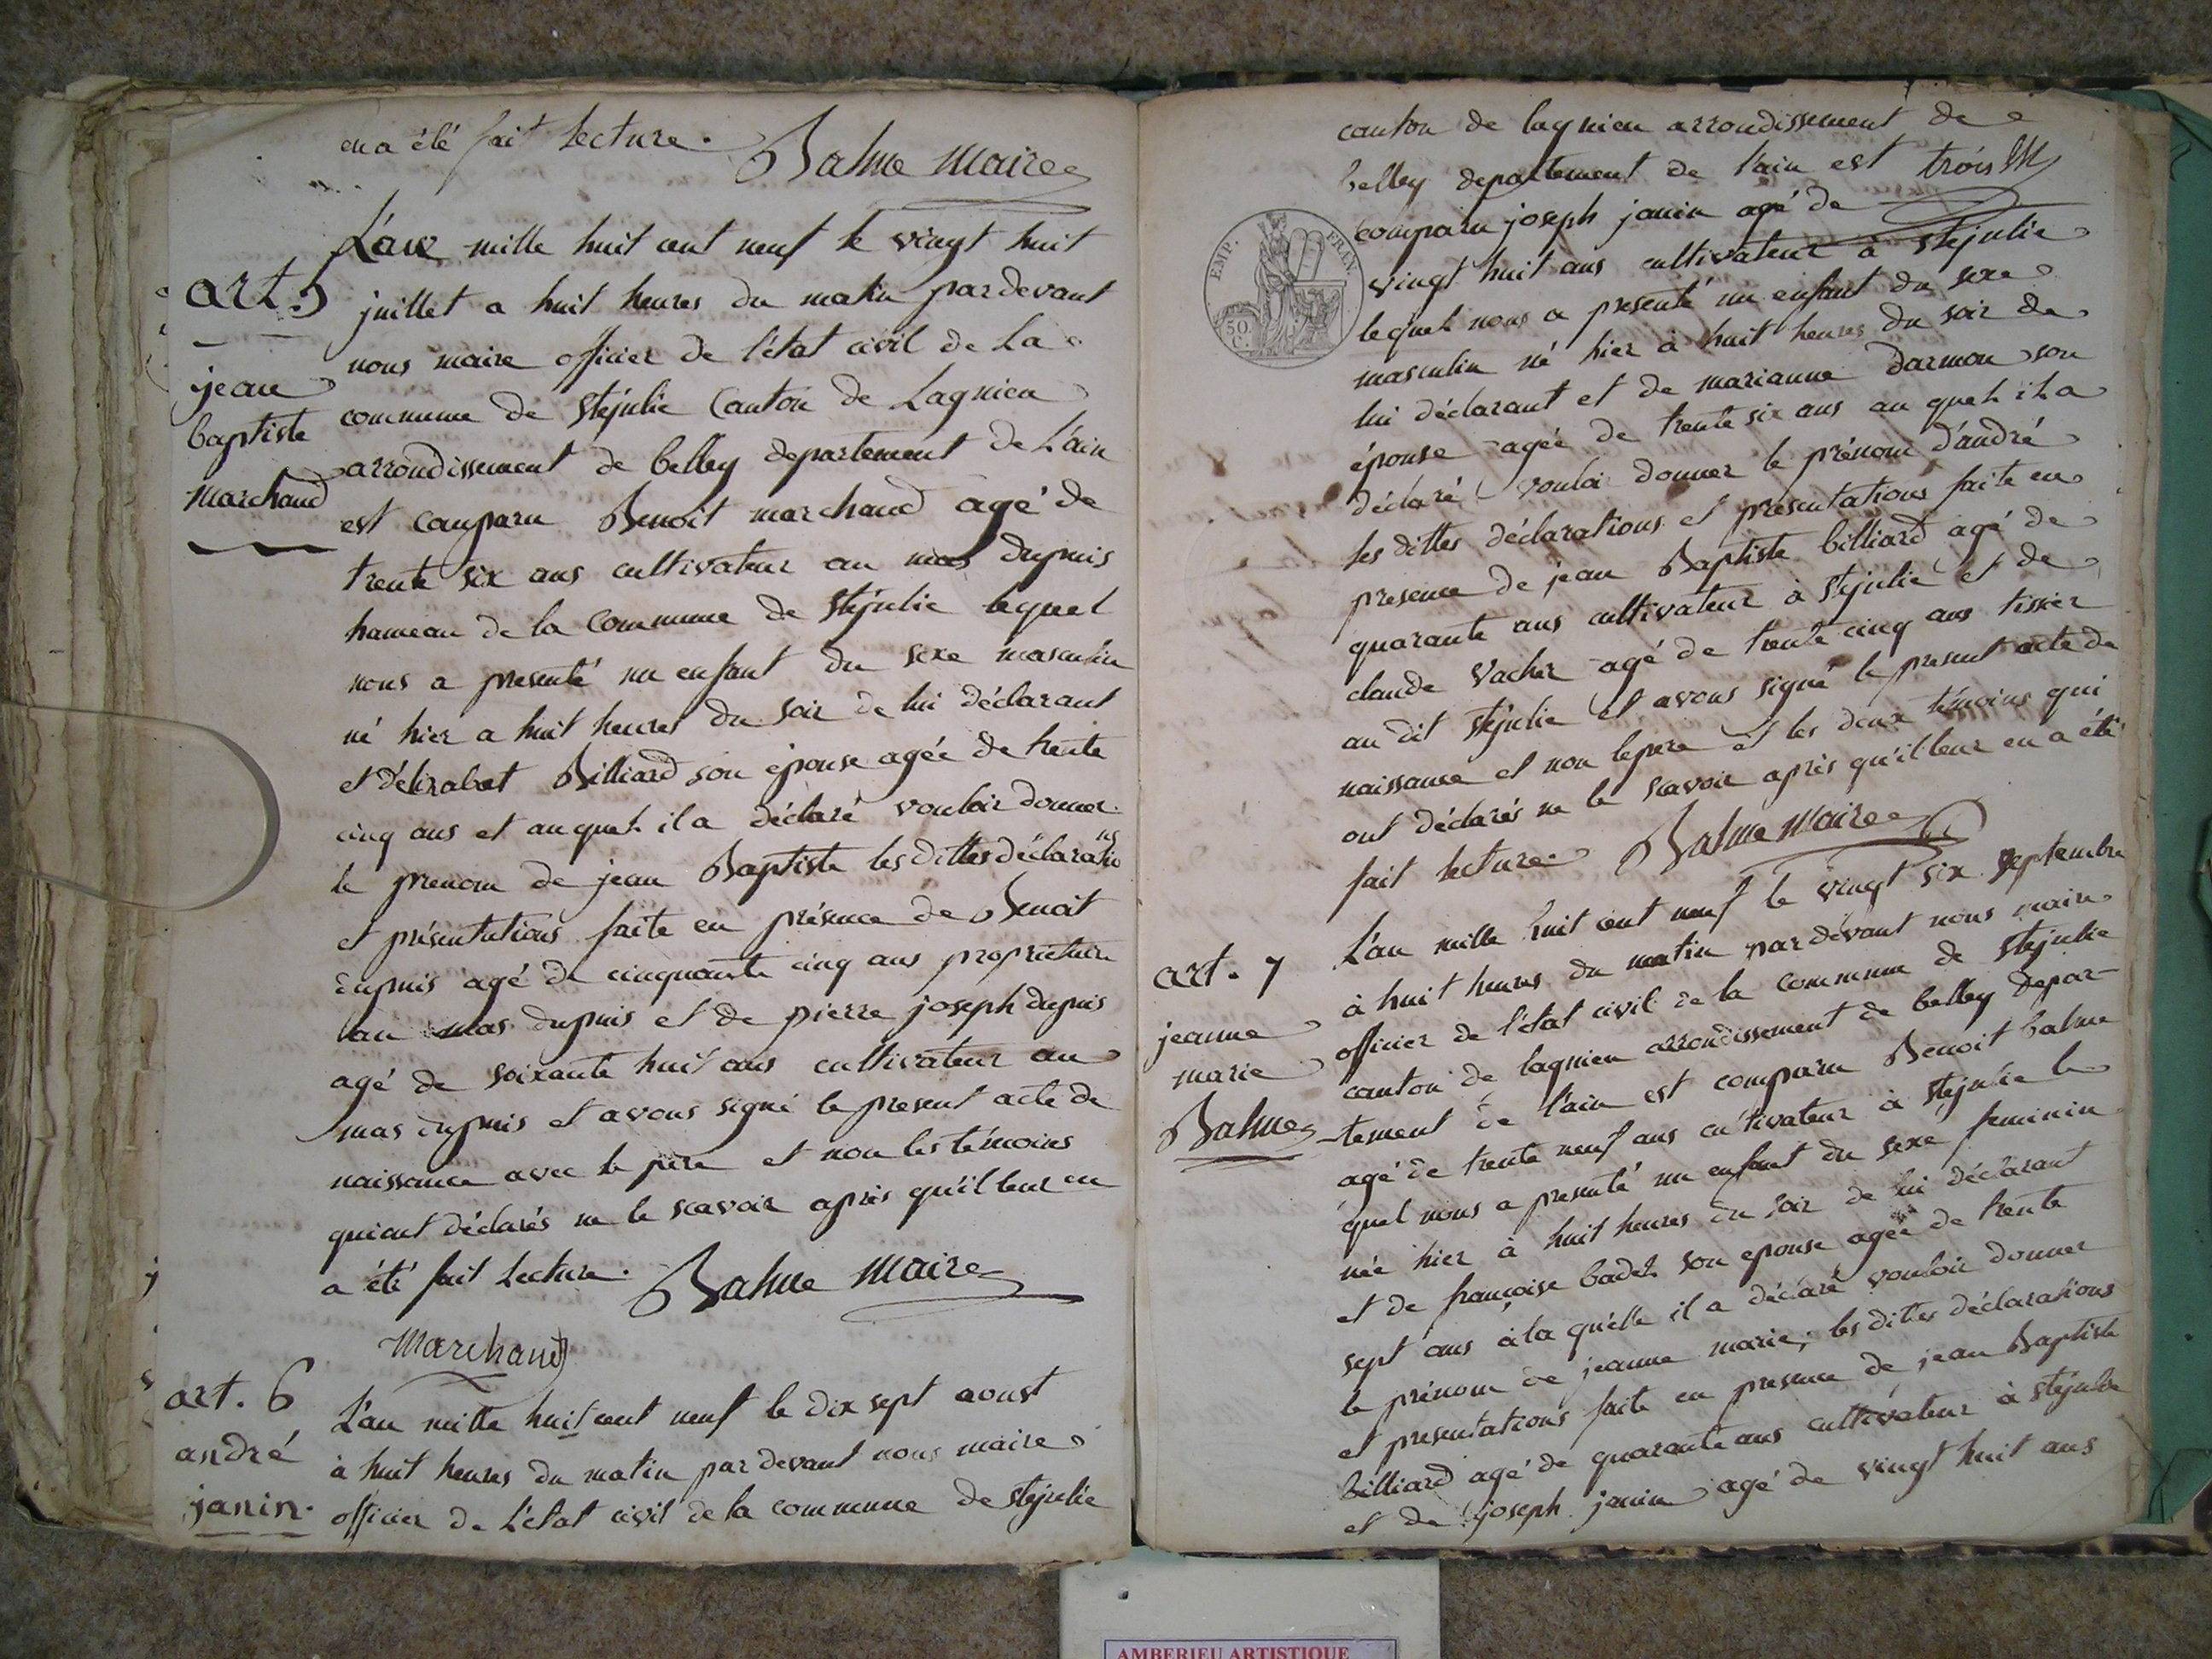 en a été fait Lecture. Balme maire
art. 5
jean
baptiste
marchand
L'an mille huit cent neuf le vingt huit
juillet a huit heures du matin pardevant
nous maire officier de l'état civil de La
commune de stejulie Canton de Lagnieu
arrondissement de belley departement de L'ain
est comparu Benoit marchand agé de
trente six ans cultivateur au mas dupuis
hameau de la Commune de stejulie lequel
nous a presenté un enfant du sexe masculin
né hier a huit heures du soir de lui déclarant
et d'élizabet Billiard son épouse agée de trente
cinq ans et auquel il a déclaré vouloir donner
le prenom de jean Baptiste les dittes déclarations
et présentations faite en présence de Benoit
dupuis agé de cinquante cinq ans propriétaire
au mas dupuis et de pierre joseph dupuis
agé de soixante huit ans cultivateur au
mas dupuis et avons signé le present acte de
naissance avec le père et non les témoins
qui ont déclarés ne le scavoir après qu'il leur en
a été fait Lecture. Balme Maire
Marchand
art. 6
andré
janin.
L'an mille huit cent neuf le dix sept aoust
à huit heures du matin par devant nous maire
officier de L'état civil de la commune de stejulie
canton de lagnieu arrondissement de
belley departement de l'ain est trois
comparu joseph janin agé de
vingt huit ans cultivateur à stejulie
lequel nous a presenté un enfant du sexe
masculin né hier à huit heures du soir de
lui déclarant et de marianne darmon son
épouse agée de trente six ans au quel il a
déclaré vouloi donner le prénom d'andré
les dittes déclarations et presentations faite en
presence de jean Baptiste billiard agé de
quarante ans cultivateur à stejulie et de
claude vacher agé de trente cinq ans tissier
au dit stejulie et avons signé le present acte de
naissance et non le pere et les deux témoins qui
ont déclarés ne le scavoir après qu'il leur en a été
fait lecture. Balme maire
EMP. FRAN.
50 C.
art. 7
jeanne
marie
Balme
L'an mille huit cent neuf le vingt six septembre
à huit heures du matin par devant nous maire
officier de l'état civil de la commune de stejulie
canton de lagnieu arrondissement de belley depar-
-tement de l'ain est comparu Benoit balme
agé de trente neuf ans cultivateur à stejulie le
quel nous a presenté un enfant du sexe feminin
née hier à huit heures du soir de lui déclarant
et de françoise badel son epouse agée de trente
sept ans à la quelle il a déclaré vouloir donner
le prénom de jeanne marie, les dittes déclarations
et presentations faite en presence de jean Baptiste
billiard agé de quarante ans cultivateur à stejulie
et de joseph janin agé de vingt huit ans
AMBERIEU ARTISTIQUE